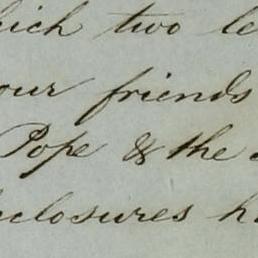 hich two le
our friends
Pope & the
closures h